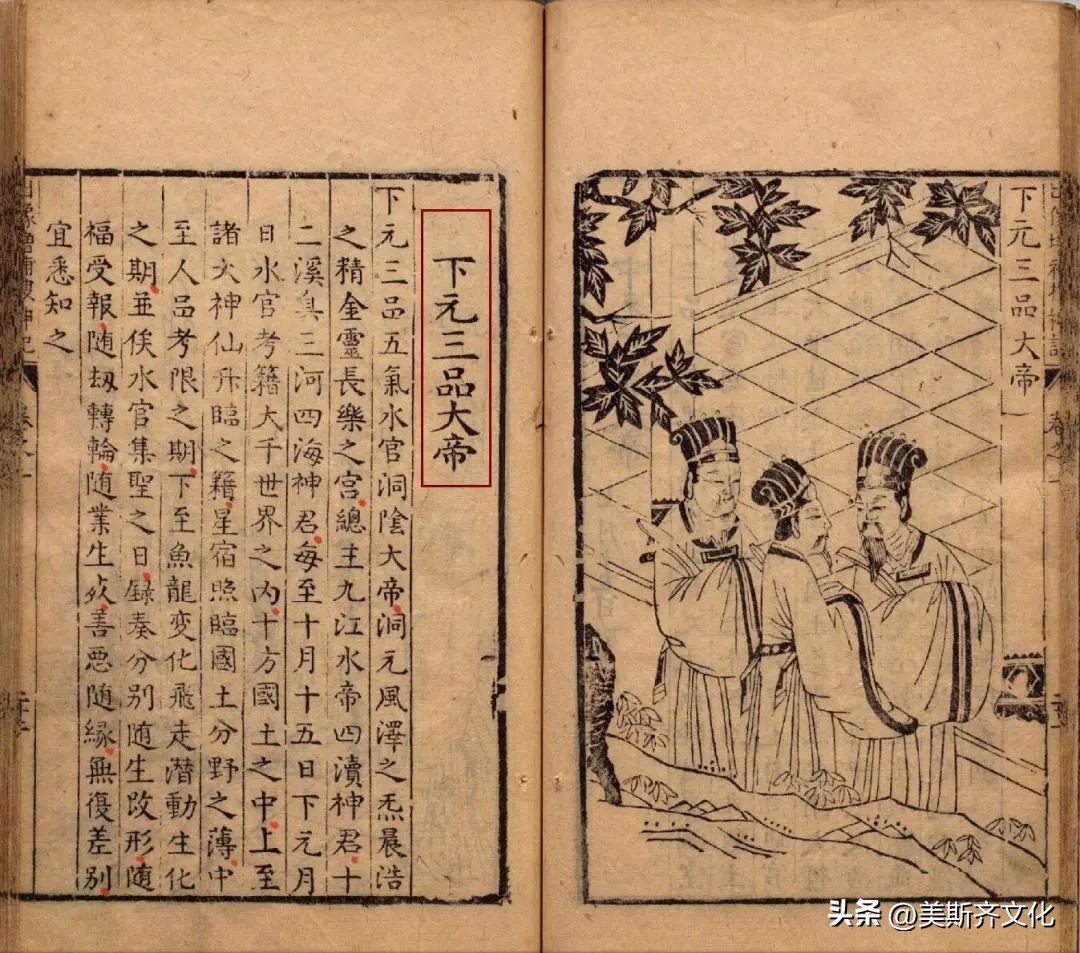 下元三品大帝
下元三品大帝
下元三品五氣水官洞陰大帝洞元風澤之炁晨浩
之精金靈長樂之宮總主九江水帝四瀆神君十
二溪真三河四海神君每至十月十五日下元月
日水官考籍大千世界之內十方國土之中上至
諸大神仙升臨之籍星宿照臨國土分野之薄中
至人品考限之期下至魚龍變化飛走潜動生化
之期並俟水官集聖之日録奏分別随生改形随
福受報随刼轉輪随業生死善悪随緣無復差别
宜悉知之
头条 @美斯齐文化